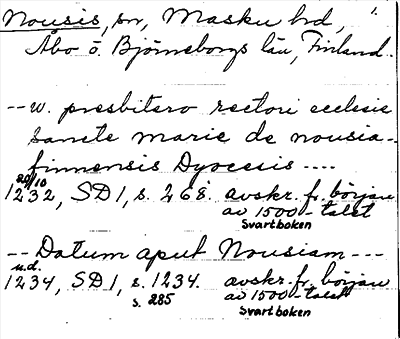 Nousis, sn, Masku hd, 1.
Åbo o. Björneborgs län, Finland.
-- w. presbitero rectori ecclesie
sancte marie de nousia-
finnensis Dyocesis ----
20/10
1232, SD 1, s. 268. avskr. fr. början
av 1500-talet
Svartboken
-- Datum aput Nousiam ---
u.d.
1234, SD 1, s. 1234. avskr. fr. början
s. 285 av 1500-talet
Svartboken